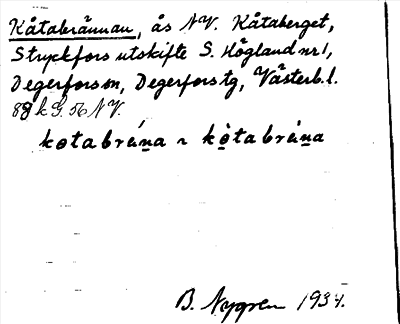 Kåtabrännan, ås NV. Kåtaberget,
Stryckfors utskifte S. Högland nr 1,
Degerfors sn, Degerfors tg, Västerb. l.
88 k G. 56 NV.
kotabrána ~ kòtabrána
B. Nygren 1934.